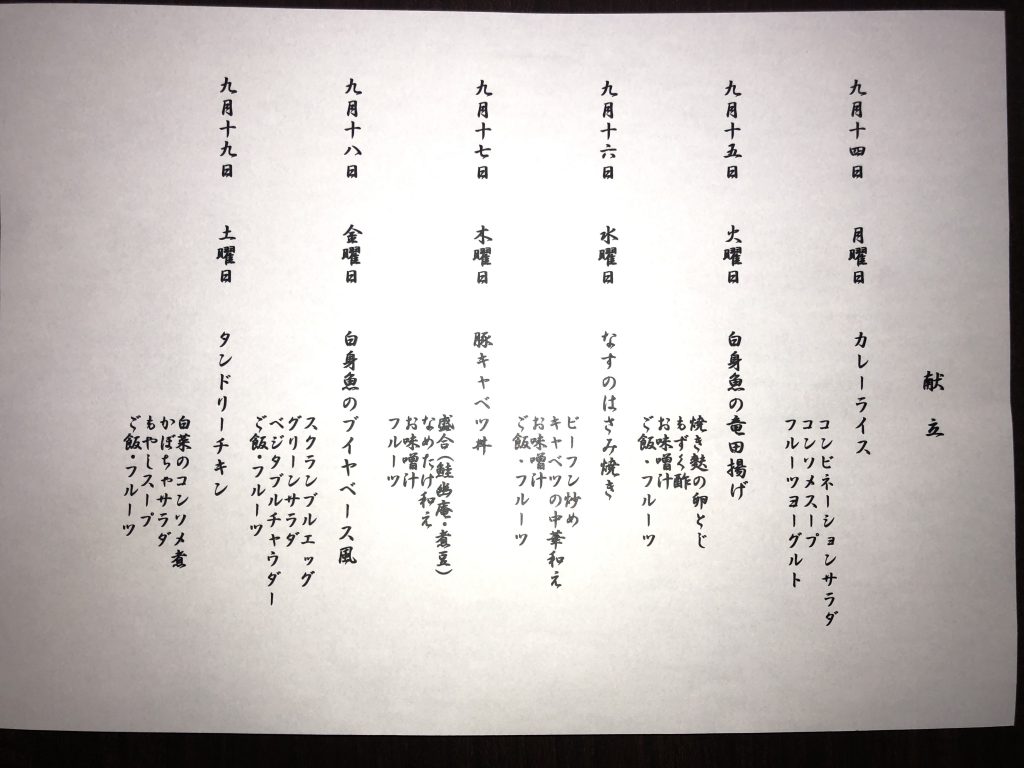 献立
九月十四日 月曜日 カレーライス
コンビネーションサラダ
コンソメスープ
フルーツヨーグルト
九月十五日 火曜日 白身魚の竜田揚げ
焼き麩の卵とじ
もずく酢
お味噌汁
ご飯・フルーツ
九月十六日 水曜日 なすのはさみ焼き
ビーフン炒め
キャベツの中華和え
お味噌汁
ご飯・フルーツ
九月十七日 木曜日 豚キャベツ丼
盛合(鮭幽庵・煮豆)
なめたけ和え
お味噌汁
フルーツ
九月十八日 金曜日 白身魚のブイヤベース風
スクランブルエッグ
グリーンサラダ
ベジタブルチャウダー
ご飯・フルーツ
九月十九日 土曜日 タンドリーチキン
白菜のコンソメ煮
かぼちゃサラダ
もやしスープ
ご飯・フルーツ